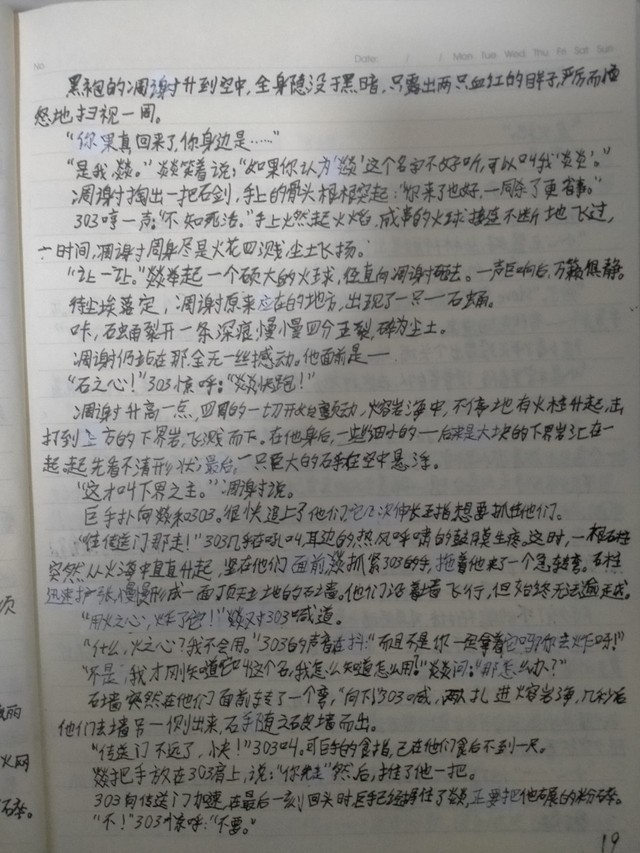 No.
Date: / / Mon Tue Wed Thu Fri Sat Sun
黑袍的凋谢寸升到空中,全身隐没于黑暗,只露出两只血红的眸子,严厉而愠
怒地扫视一周。
“你果真回来了,你身边是……”
“是我燚。”燚笑着说:“如果你认为‘燚’这个名字不好听,可以叫我‘炎炎’。”
凋谢寸掏出一把石剑,手上的骨头根根突起:“你来了也好,一同除了更省事。”
303哼一声:“不知死活。”手上火燃起火焰,成串的火球接连不断地飞过,
一时间,凋谢寸周身尽是火花四溅,尘土飞扬。
“让一让。”燚举起一个硕大的火球,径直向凋谢寸砸去。一声巨响后,万籁俱静。
待尘埃落定,凋谢寸原来应在的地方,出现了一只石蛹。
咔,石蛹裂开一条深痕,慢慢四分五裂,碎为尘土。
凋谢仍站在那,全无一丝撼动。他面前是——
“石之心!”303惊呼:“燚快跑!”
凋谢寸升高一点,四周的一切开始颤动,熔岩海中,不停地有火柱升起,击
打到上方的下界岩,飞溅而下。在他身后,一些细小的——后来是大块的下界岩汇在一
起。起先看不清形状,最后,一只巨大的石手在空中悬浮。
“这才叫下界之主。”凋谢寸说。
巨手扑向燚和303。很快追上了他们,它几次伸长五指想要抓住他们。
“往传送门那走!”303几乎在吼叫,耳边的热风呼啸的鼓膜生疼。这时,一根石柱
突然从火海中直直升起,坚在他们面前,燚抓紧303的手,拖着他来了个急转弯。石柱
迅速扩张,慢慢形成一面顶天立地的石墙。他们沿着墙飞行,但始终无法逾越。
“用火之心,炸了它!”燚对303喊道。
“什么,火之心?我不会用。”303的声音在抖:“而且不是你一定拿着它吗?你去炸呀!”
“不是,我才刚知道它叫这个名,我怎么知道怎么用!”燚问:“那怎么办?”
石墙突然在他们面前转了一个弯,“向下!”303喊,两人扎进熔岩海,几秒后
他们在墙另一侧出来,石手随之破墙而出。
“传送门不远了,快!”303叫。可巨手的食指,已在他们背后不到一尺。
燚把手放在303背上,说:“你先走”然后,推了他一把。
303向传送门加速,在最后一刻回头时,巨手已经握住了燚,正要把他右展的
“不!”303惊呼:“不要。”
19
须
丽
火网
石本。